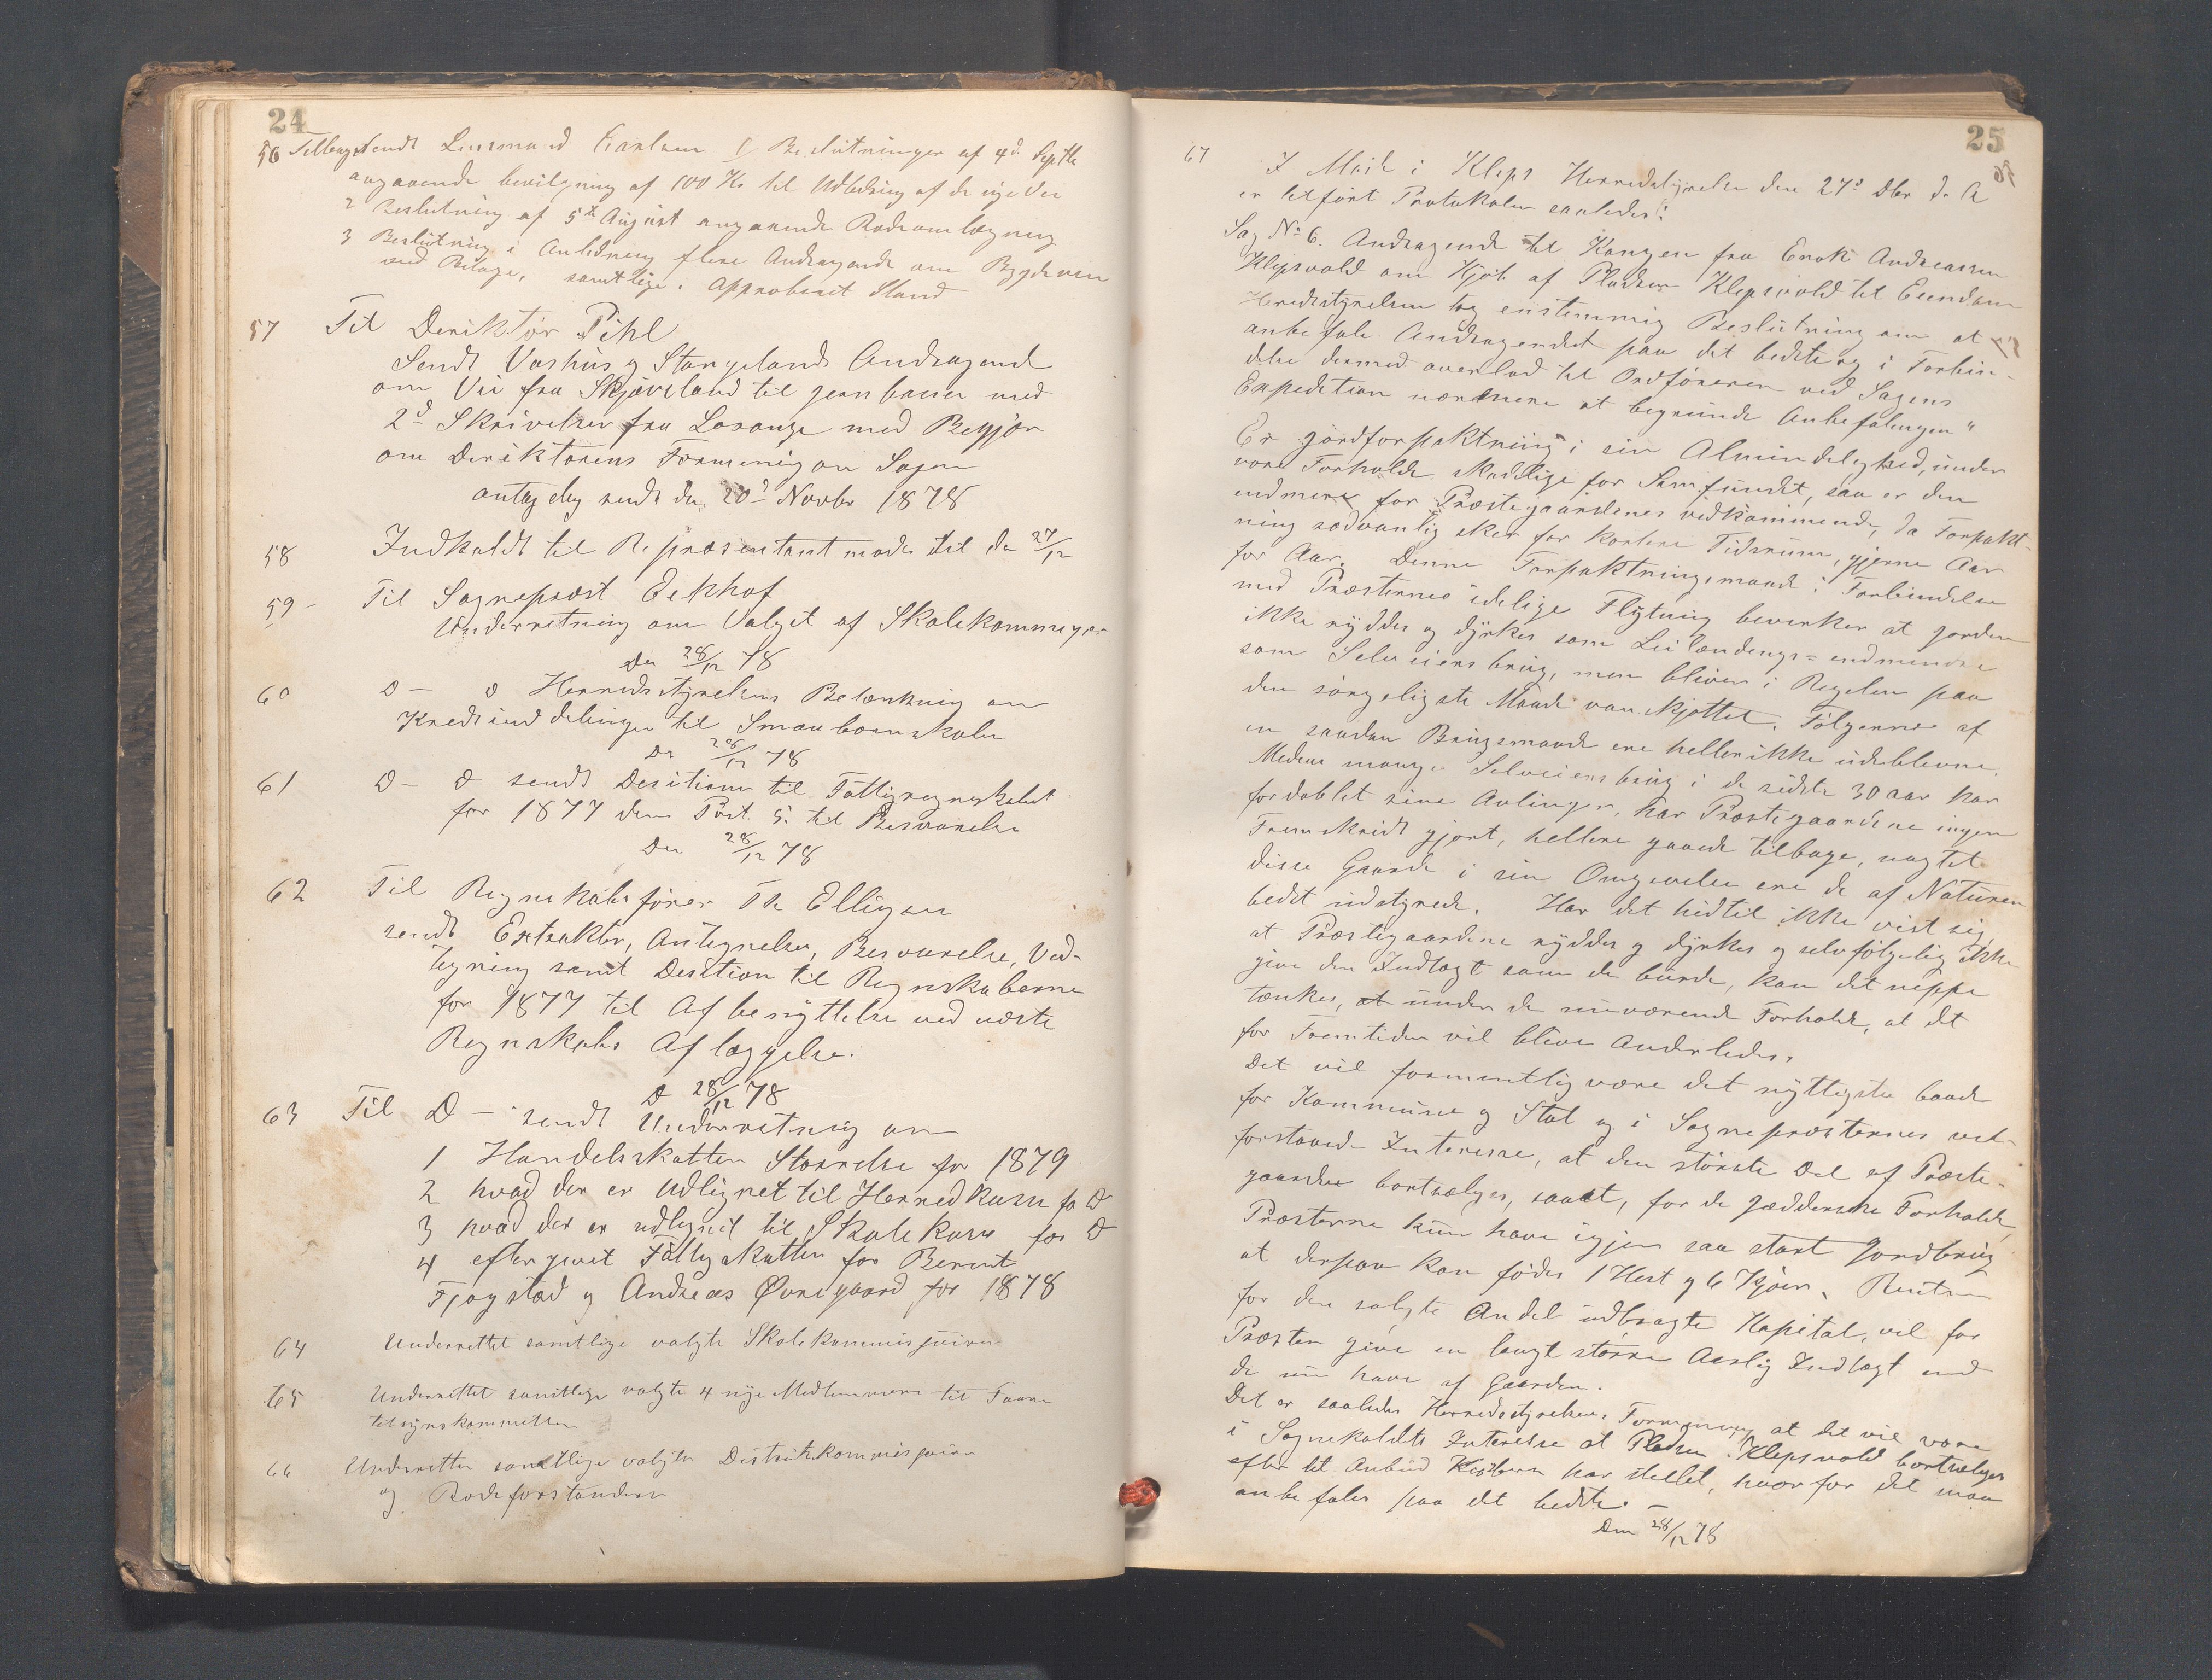 24
56 Tilbagesendt Lensmand 1) Beslutninger af 4de Septbr
angaaende bevilgning af 100 Kr til Udbedring af de nye Veie
2 Beslutning af 5te August angaaende Rodeomlægning
3 Beslutning i Anledning flere Andragende om Bygdeveie
med Bilage, samtlige i Approberet Stand
57 Til Deriktør Pihl
Sendt Vashus og Stangelands Andragend
om Vei fra Skjæveland til jernbanen med
2d Skrivelser fra Losange med Begjær
om Deriktørens Formening om Sagen
antagelig sendt den 20d Novbr 1878
58 Indkaldt til Repræsentantmøde til den 27/12
59 - Til Sognepræst Eckhof
Underretning om Valget af Skolekommisjon
Den 28/12 78
60 D - D Herredsstyrelsens Betænkning om
Kredsinddelingen til Smaabørnskolen
Den 28/12 78
61 D - D sendt Desitioner til Fattigregnskabet
for 1877 dens Post 5. til Besvarelse
Den 28/12 78
62 Til Regnskabsfører Th Elligsen
sendt Extrakter, Antegnelser, Besvarelse, Ved-
tegning samt Desition til Regnskaberne
for 1877 til Afbenyttelse ved næste
Regnskabs Aflæggelse.
D 28/12 78
63 Til D - sendt Underretning om
1 Handelsskatten Størrelse for 1879
2 hvad der er udlignet til Herredkassen for D
3 hvad der er udlignet til Skolekassen for D
4 eftergivet Fattigskatten for Berent
Fjogstad og Andreas Øvregaard for 1878
64 Underrettet samtlige valgte Skolekommisjoirer
65 Underrettet samtlige valgte 4 nye Medlemmere til Faare
tilsynskommitten
66 Underrettet samtlige valgte Distriktskommisjoirer
og Rodeforstandere
25
67 I Møde i Kleps Herredsstyrelse den 27d Dbr d. A
er tilført Protokolen saaledes:
Sag No 6. Andragende til Kongen fra Enok Andreassen
Klepsvold om Kjøb af Pladsen Klepsvold til Eiendom
Herredsstyrelsen tog enstemmig Beslutning om at
anbefale Andragendet paa det bedste og i Forbin-
delse dermed overlod til Ordføreren ved Sagens
Expedition nærmere at begrunde Anbefalingen"
Er jordforpaktning i sin Almindelighed, under
vore Forholde skadelige for Samfundet, saa er den
endmere for Præstegaardenes vedkommende, da Forpakt-
ning sædvanlig sker for kortere Tidsrum, gjerne Aar
for Aar. Denne Forpaktningsmaade i Forbindelse
med Præsternes idelige Flytning bevirker at jorden
ikke ryddes og dyrkes som Leilændings- endmindre
som Selveiersbrug, men bliver i Regelen paa
den sørgeligste Maade vanskjøttet. Følgerne af
en saadan Brugsmaade ere heller ikke udeblevne.
Medens mange Selveiersbrug i de sidste 30 aar har
fordoblet sine Avlinger, har Præstegaardene ingen
Fremskridt gjort, hellere gaaede tilbage, uagtet
disse Gaarde i sin Omgivelse ere de af Naturen
bedst udstyrede. Har det hidtil ikke vist sig,
at Præstegaardene ryddes og dyrkes og selvfølgelig ikke
give den Indtægt som de burde, kan det neppe
tænkes, at under de nuværende Forholde, at det
for Fremtiden vil blive Anderledes.
Det vil formentlig være det nyttigste baade
for Kommune og Stat og i Sognepræsternes vel-
forstaaede Interesse, at den største Del af Præste-
gaarden bortsælges, saaat, for de jædderske Forholde,
Præsterne kun have igjen saa stort Jordbrug
at derpaa kan fødes 1 Hest og 6 Kjøer. Renten
for den solgte Andel udbragte Kapital, vil for
Præsten give en langt større Aarlig Indtægt end
de nu have af Gaarden.
Det er saaledes Herredsstyrelsens Formening at det vil være
i Sognekaldets Interesse at Pladsen Klepsvold bortsælges
efter det Anbud Kjøberen har stillet, hvorfor det maa
anbefales paa det bedste. -
Den 28/12 78